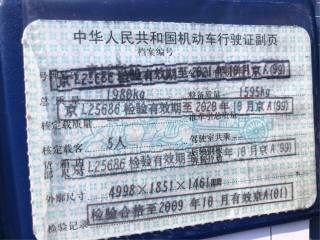 中华人民共和国机动车行驶证副页
档案编号
号牌
京L25686检验有效期至2021年10月京A(99)
总质量 1980kg 整备质量 1595kg
京L25686检验有效期至2020年10月京A(99)
核定载质量
核定载客 5人 驾驶室共乘
L25686检验有效期至 年 月京A(99)
外廓尺寸 4998×1851×1461mm
检验记录 检验合格至2009年10月有效京A(01)